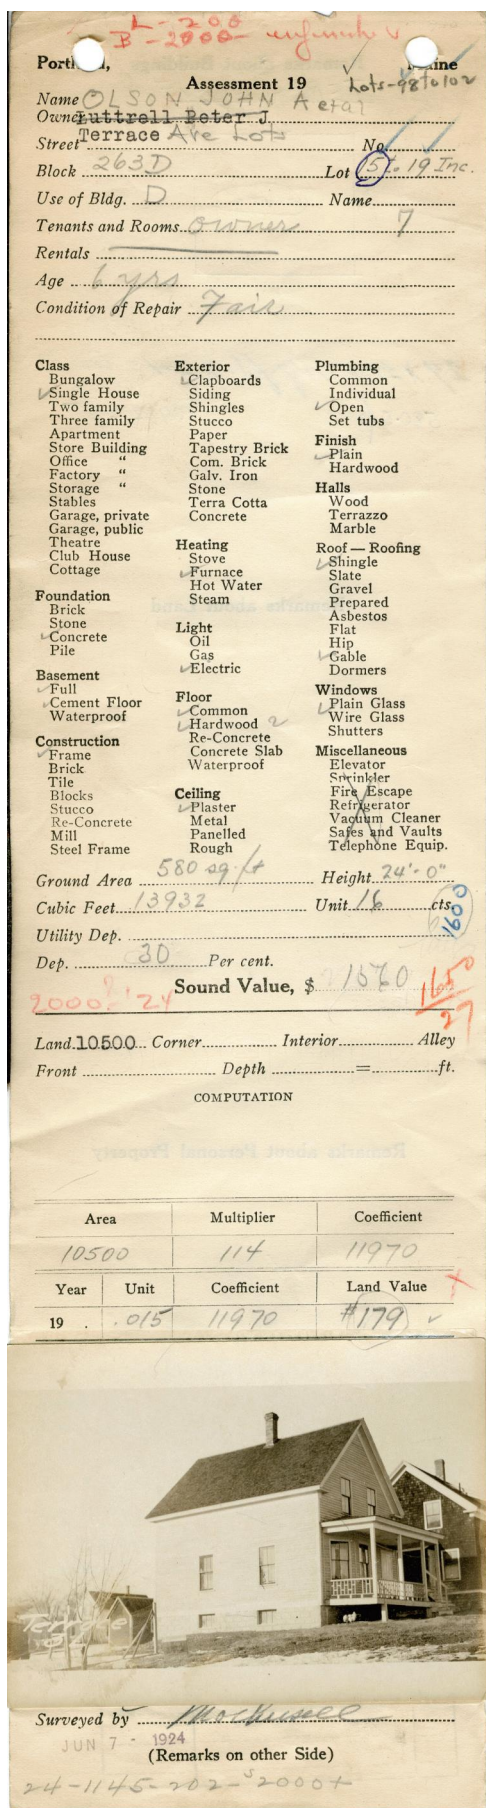 L - 200
B - 2000 -
Portland, Maine
Assessment 19
Lots - 98 to 102
Name OLSON JOHN A etal
Owner Luttrell Peter J
Street Terrace Ave Lots No.
Block 263D Lot 15 to 19 Inc.
Use of Bldg. D Name
Tenants and Rooms owner 7
Rentals
Age 6 yrs
Condition of Repair Fair
Class
Bungalow
Single House
Two family
Three family
Apartment
Store Building
Office "
Factory "
Storage "
Stables
Garage, private
Garage, public
Theatre
Club House
Cottage
Foundation
Brick
Stone
Concrete
Pile
Basement
Full
Cement Floor
Waterproof
Construction
Frame
Brick
Tile
Blocks
Stucco
Re-Concrete
Mill
Steel Frame
Exterior
Clapboards
Siding
Shingles
Stucco
Paper
Tapestry Brick
Com. Brick
Galv. Iron
Stone
Terra Cotta
Concrete
Heating
Stove
Furnace
Hot Water
Steam
Light
Oil
Gas
Electric
Floor
Common
Hardwood 2
Re-Concrete
Concrete Slab
Waterproof
Ceiling
Plaster
Metal
Panelled
Rough
Plumbing
Common
Individual
Open
Set tubs
Finish
Plain
Hardwood
Halls
Wood
Terrazzo
Marble
Roof — Roofing
Shingle
Slate
Gravel
Prepared
Asbestos
Flat
Hip
Gable
Dormers
Windows
Plain Glass
Wire Glass
Shutters
Miscellaneous
Elevator
Sprinkler
Fire Escape
Refrigerator
Vacuum Cleaner
Safes and Vaults
Telephone Equip.
Ground Area 580 sq. ft Height 24'-0"
Cubic Feet 13932 Unit 16 cts.
1600
Utility Dep.
Dep. 30 Per cent.
Sound Value, $ 1560
1650
27
2000 - '24
Land 10500 Corner Interior Alley
Front Depth = ft.
COMPUTATION
Area Multiplier Coefficient
10500 114 11970
Year Unit Coefficient Land Value
19 . .015 11970 $179
Terrace
Surveyed by
JUN 7 - 1924
(Remarks on other Side)
24-1145-202-$2000+